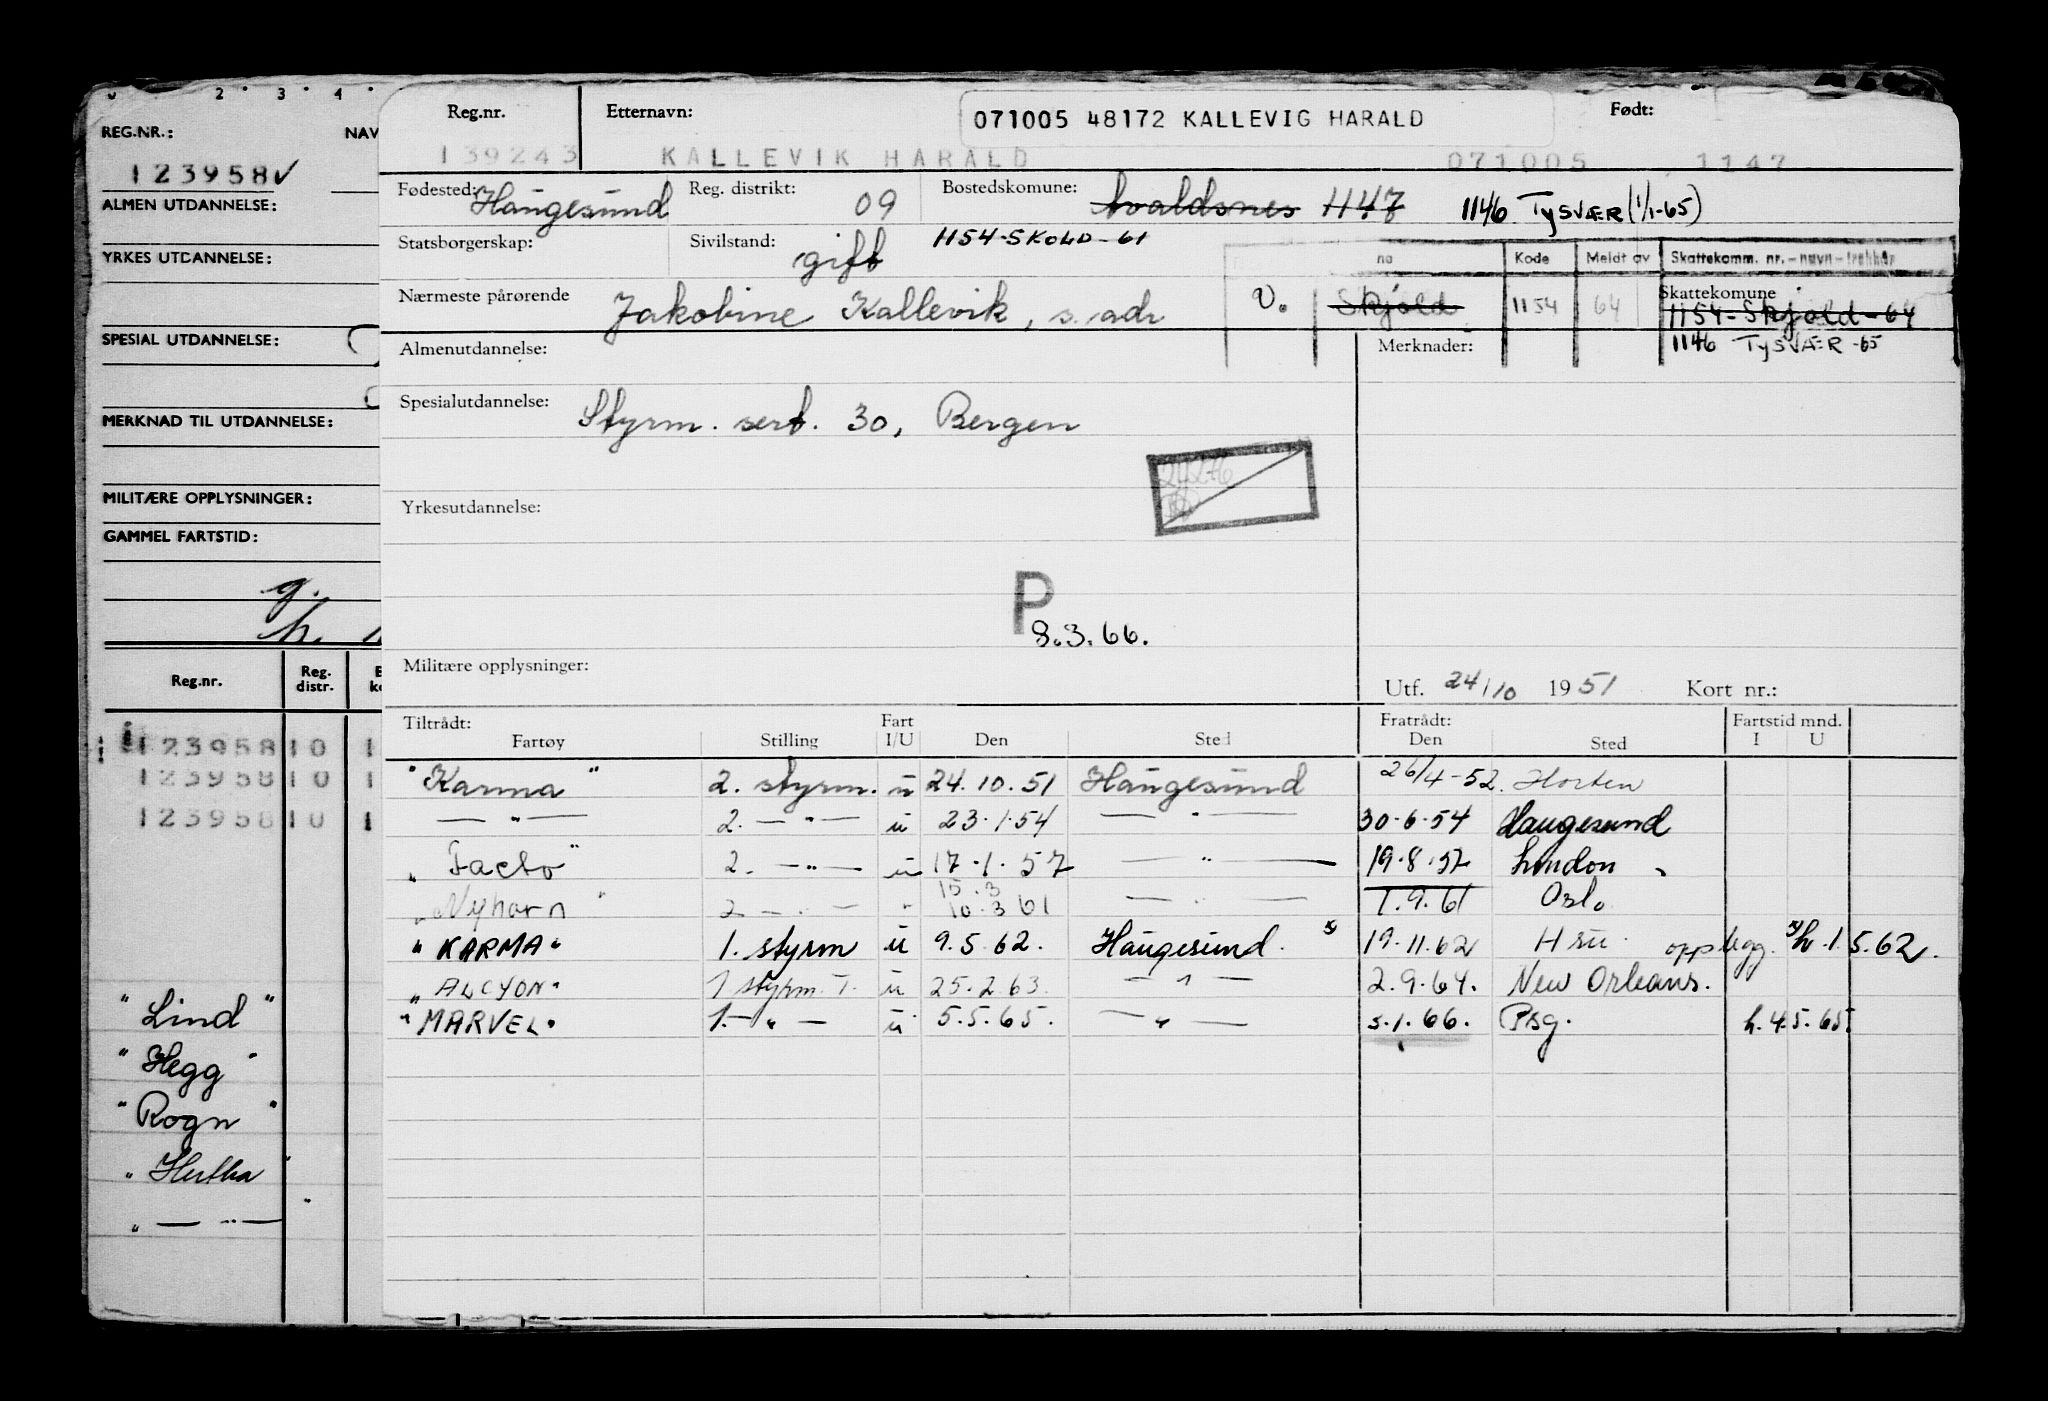 2 · 3 · 4 ·
REG.NR.: NAV
123958 ✓
ALMEN UTDANNELSE:
YRKES UTDANNELSE:
SPESIAL UTDANNELSE:
MERKNAD TIL UTDANNELSE:
MILITÆRE OPPLYSNINGER:
GAMMEL FARTSTID:
g.
h.
Reg.nr. Reg. distr.
123958 10 1
123958 10 1
123958 10 1
"Lind"
"Hegg"
"Rogn"
"Hertha"
" — " —
Reg.nr. Etternavn: 071005 48172 KALLEVIG HARALD Født:
139243 KALLEVIK HARALD 071005 1147
Fødested: Haugesund Reg. distrikt: 09 Bostedskomune: Avaldsnes 1147 1146 TYSVÆR (1/1-65)
Statsborgerskap: Sivilstand: gift 1154-SKOLD-61
na Kode Meldt av Skattekomm. nr.-navn-
Nærmeste pårørende Jakobine Kallevik, s. adr
v. Skjold 1154 64 Skattekomune
1154-Skjold-64
Almenutdannelse: Merknader: 1146 TYSVÆR -65
Spesialutdannelse: Styrm. sert. 30, Bergen
Yrkesutdannelse:
P
8.3.66.
Militære opplysninger:
Utf. 24/10 1951 Kort nr.:
Tiltrådt: Fart Fratrådt: Fartstid mnd.
Fartøy Stilling I/U Den Sted Den Sted I U
"Karma" 2. styrm. u 24.10.51 Haugesund 26/4-52. Horten
— " — 2. — " — u 23.1.54 — " — 30.6.54 Haugesund
"Facto" 2. — " — u 17.1.57 — " — 19.8.57 London
15.3
"Nyhorn" 2 — " — " 10.3 61 — " — 1.9.61 Oslo
"KARMA" 1. styrm u 9.5.62. Haugesund. 19.11.62 Hsu. opplegg. h. 1.5.62.
"ALCYON" 1 styrm. T. u 25.2.63. — " — 2.9.64. New Orleans.
"MARVEL" 1. — " — u 5.5.65. — " — 5.1.66. Psg. h. 4.5.65